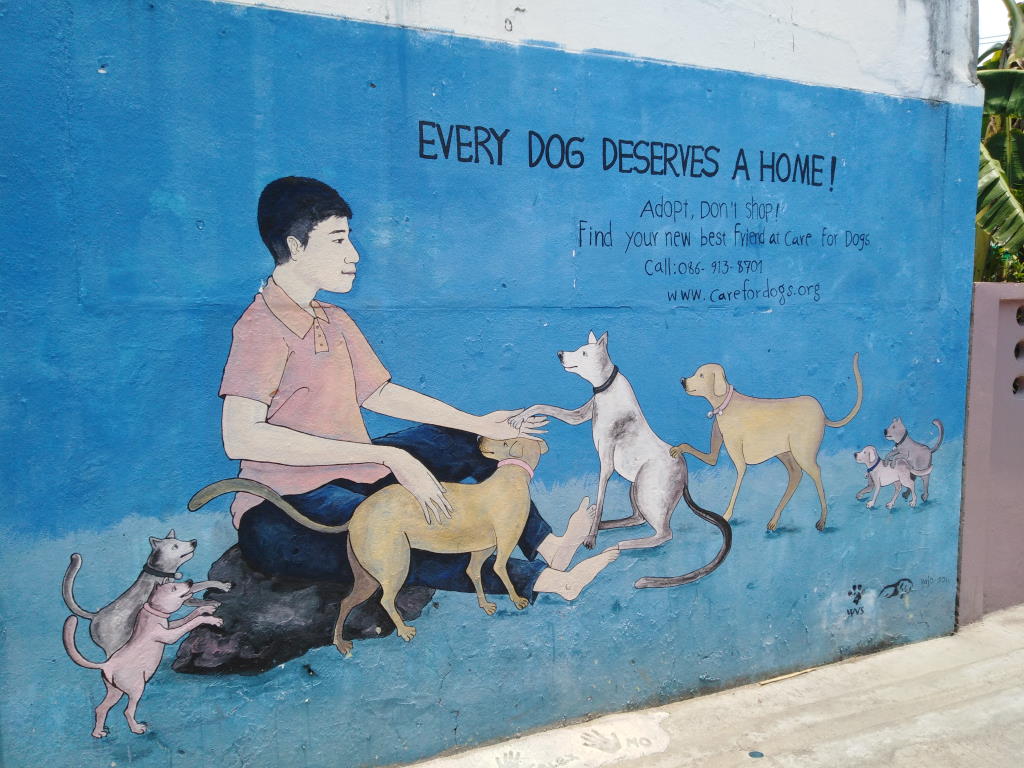 EVERY DOG DESERVES A HOME!
Adopt, Don't shop!
Find your new best friend at Care for Dogs
Call:086-913-8701
www.carefordogs.org
WVS
MO